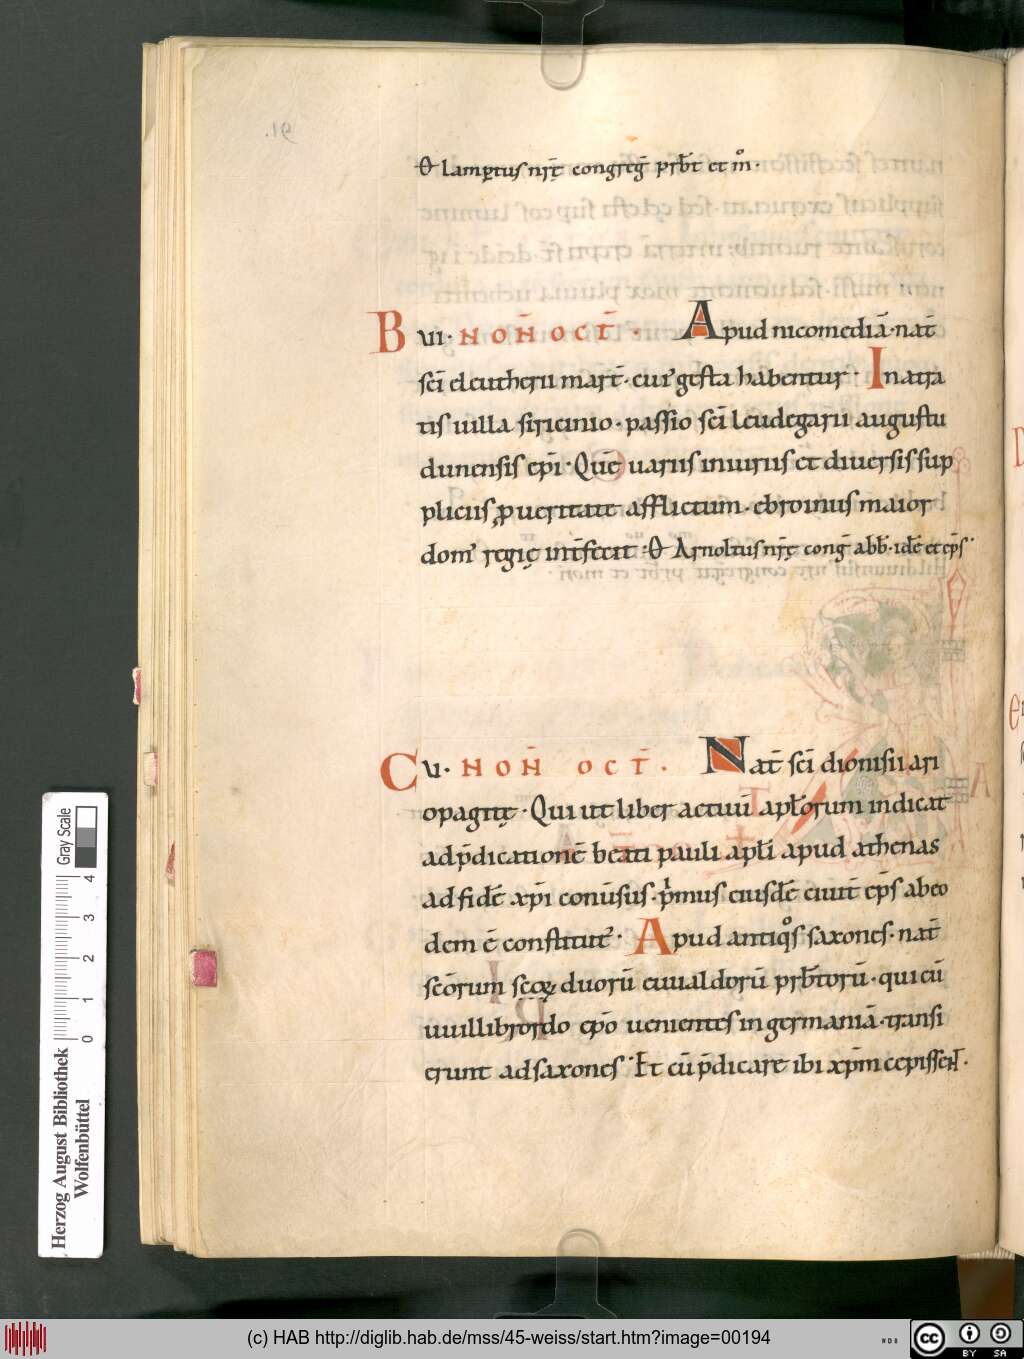 Ꝋ lamꝑtus nr̄ę̄ congreḡ prb̄t et mº·
B vi· NON̄ OCT̄· Apud nicomediā·nat̄
sc̄i eleutherii mart̄·cuiꝰ gesta habentur· In atra
tis uilla siricinio·passio sc̄i Leudegarii augustu
dunensis ep̄i·Quē uariis iniuriis et diuersis sup
pliciis, ꝓ ueritate afflictum·ebroinus maior
domꝰ regię int̄fecit:Ꝋ Arnoltus nr̄ę cong̅ abb̄·idē et ep̄s·
C v· NON̄ OCT̄· Nat̄ sc̄i dionisii ari
opagitę·Qui ut liber actuū apl̄orum indicat
ad p̄dicationē beati pauli apl̄i apud athenas
ad fidē xp̄i conūsus·pͥmus eiusdē ciuit̄ ep̄s ab eo
dem ē constitutꝰ· Apud antiqͦs saxones·nat̄
sc̄orum sc̄oꝝ duorū euualdorū prb̄torū·qui cū
uuillibrordo ep̄o uenientes in germaniā·transi
erunt ad saxones·Et cū p̄dicare ibi xp̄m cepissent·
91.
Herzog August Bibliothek
Wolfenbüttel
0 1 2 3 4
Gray Scale
(c) HAB http://diglib.hab.de/mss/45-weiss/start.htm?image=00194
cc BY SA